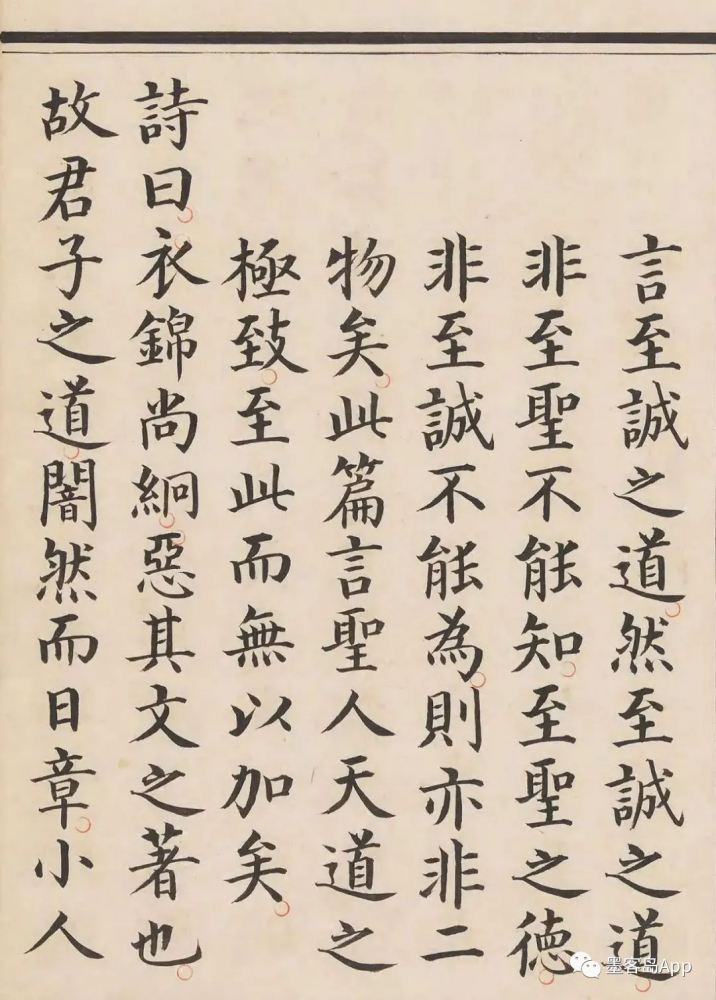 言至誠之道然至誠之道
非至聖不能知至聖之德
非至誠不能為則亦非二
物矣此篇言聖人天道之
極致至此而無以加矣
詩曰衣錦尚絅惡其文之著也
故君子之道闇然而日章小人
墨客岛App